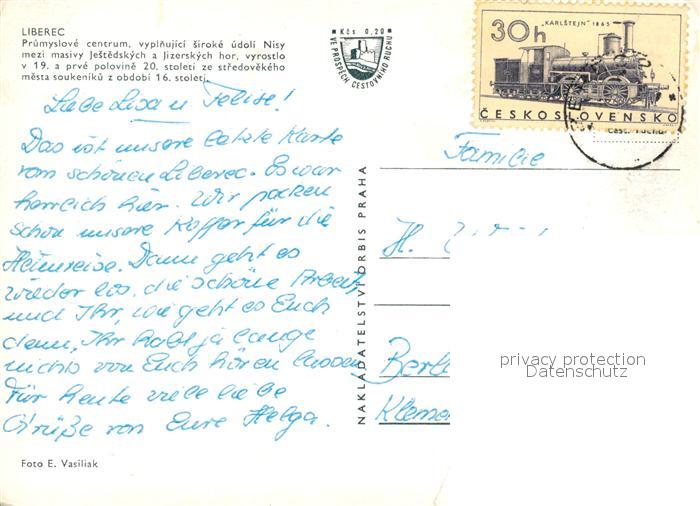 LIBEREC
Průmyslové centrum, vyplňující široké údolí Nisy
mezi masivy Ještědských a Jizerských hor, vyrostlo
v 19. a prvé polovině 20. století ze středověkého
města soukeníků z období 16. století.
Kčs 0,20
VE PROSPĚCH CESTOVNÍHO RUCHU
"KARLŠTEJN" 1865
30h
ČESKOSLOVENSKO
cest. ruchu
Liebe Lisa u
Das ist unsere letzte Karte
vom schönen Liberec. Es war
herrlich hier. Wir packen
schon unsere Koffer für die
Heimreise. Dann geht es
wieder los, die schöne Arbeit,
und Ihr, wie geht es Euch
denn, Ihr habt ja lange
nichts von Euch hören lassen.
Für heute viele liebe
Grüße von Eure Helga.
Familie
H.
Berl
Klemen
NAKLADATELSTVÍ ORBIS PRAHA
Foto E. Vasiliak
privacy protection
Datenschutz